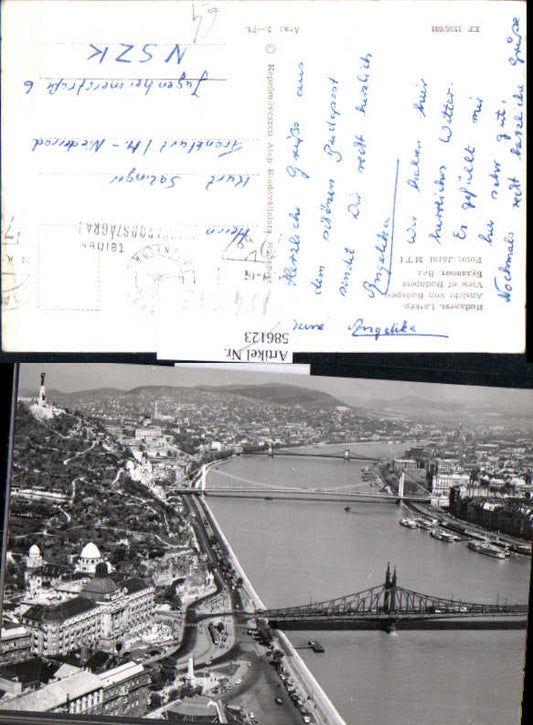 Herzliche Grüße aus
dem schönen Budapest
sendet Dir recht herzlich
Angelika
Wir haben hier
herrliches Wetter.
Es gefällt mir
hier sehr gut,
Nochmals recht herzliche Grüße
Deine Angelika
EF 1516/681
Ára: 2.— Ft.
© Képzőművészeti Alap Kiadóvállalata, Budapest
Budapest. Látkép
Ansicht von Budapest
View of Budapest
Foto: Járai MTI
Herrn
Kurt Salinger
Frankfurt / M - Niederrad
Jugenheimerstraße 6
NSZK
Artikel Nr.
586123